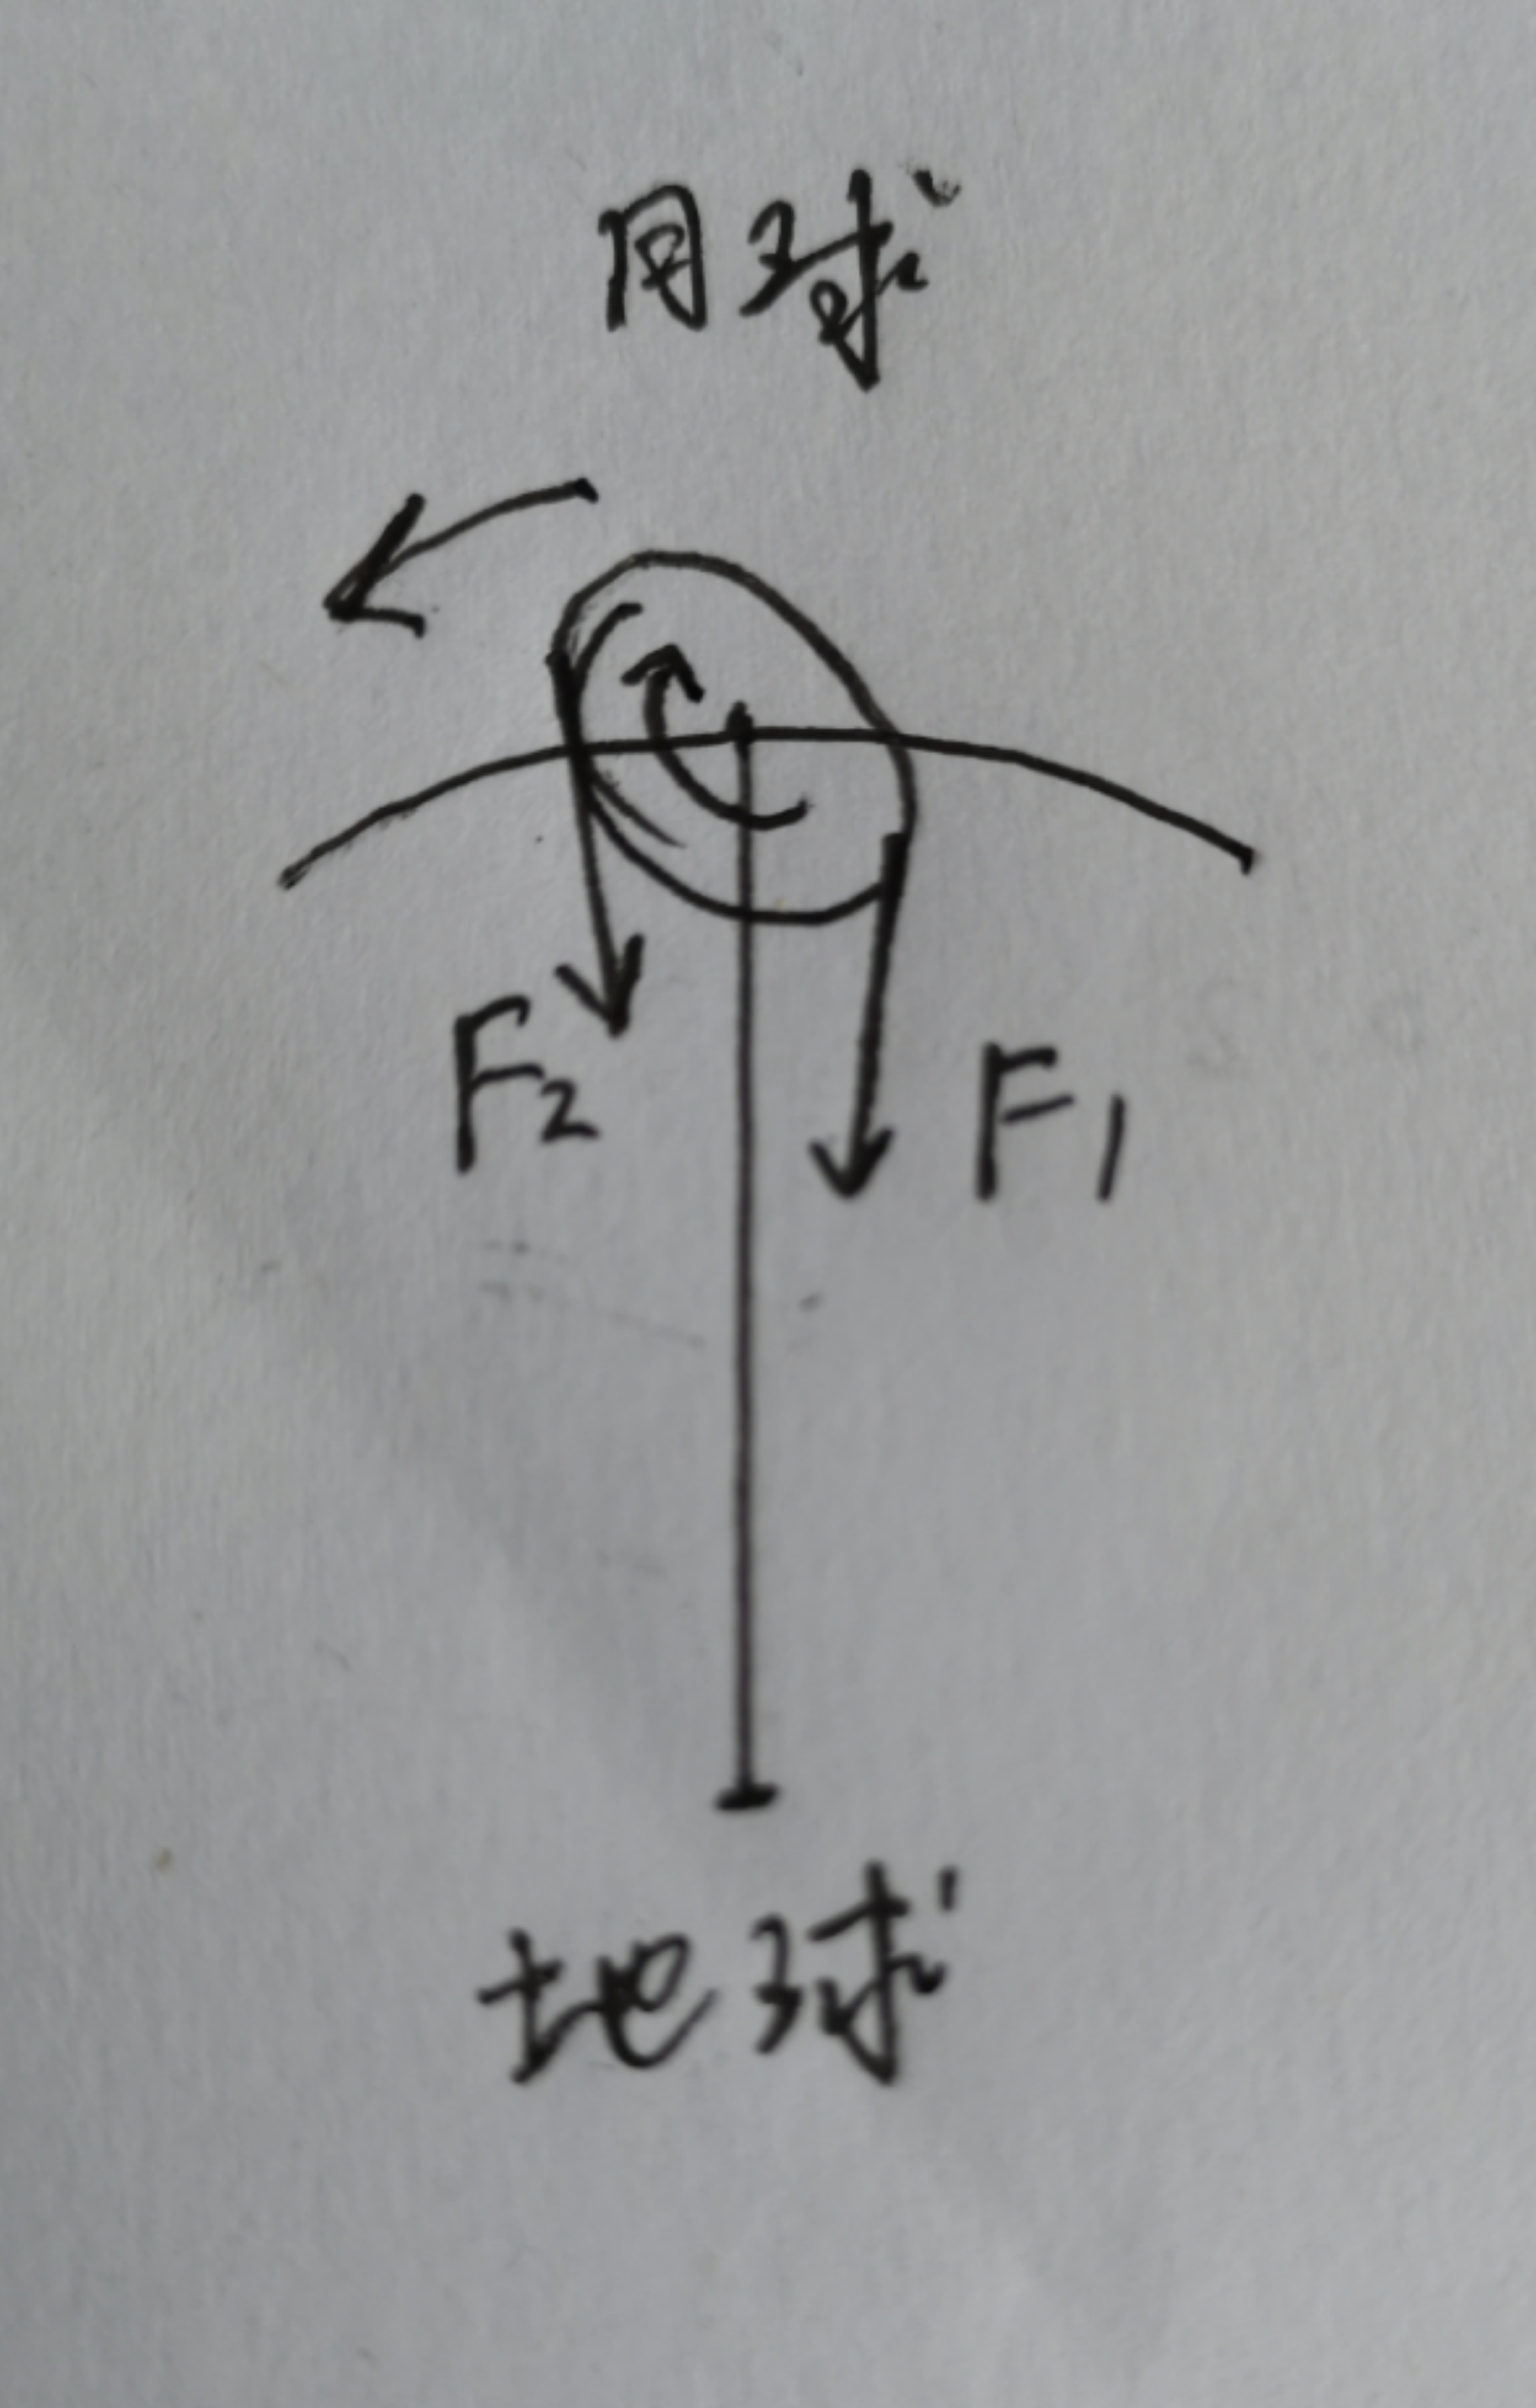 月球
F2 F1
地球